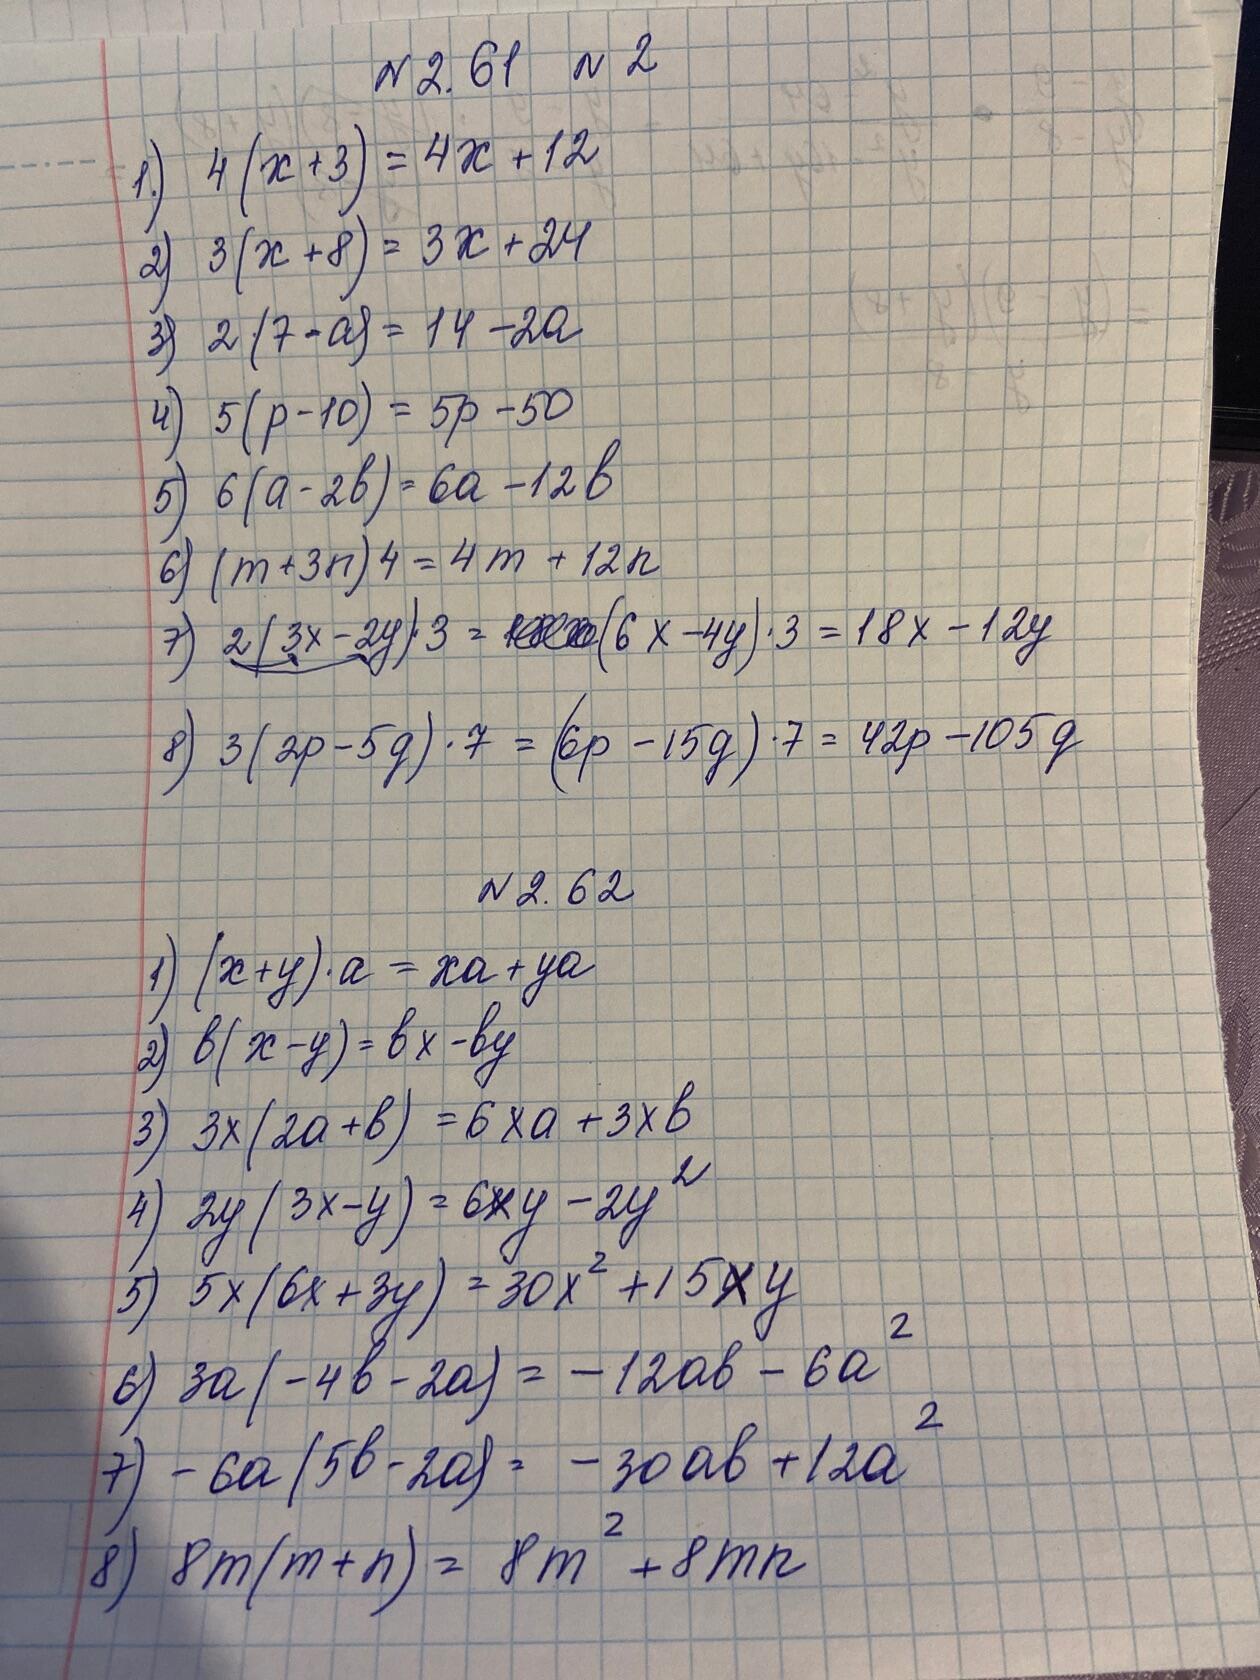 N2.61 N2
1.) 4(x+3)=4x+12
2) 3(x+8)=3x+24
3) 2(7-a)=14-2a
4) 5(p-10)=5p-50
5) 6(a-2b)=6a-12b
6) (m+3n)4=4m+12n
7) 2(3x-2y)·3=(6x-4y)·3=18x-12y
8) 3(2p-5g)·7=(6p-15g)·7=42p-105g
N2.62
1) (x+y)·a=xa+ya
2) b(x-y)=bx-by
3) 3x(2a+b)=6xa+3xb
4) 2y(3x-y)=6xy-2y²
5) 5x(6x+3y)=30x²+15xy
6) 3a(-4b-2a)=-12ab-6a²
7) -6a(5b-2a)=-30ab+12a²
8) 8m(m+n)=8m²+8mn